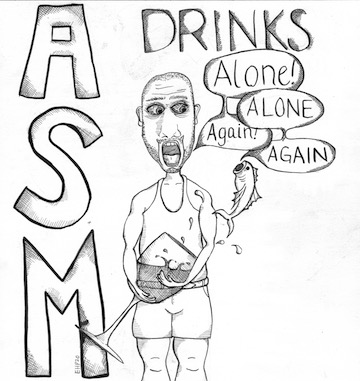 ASM
DRINKS
Alone!
ALONE
Again?
AGAIN